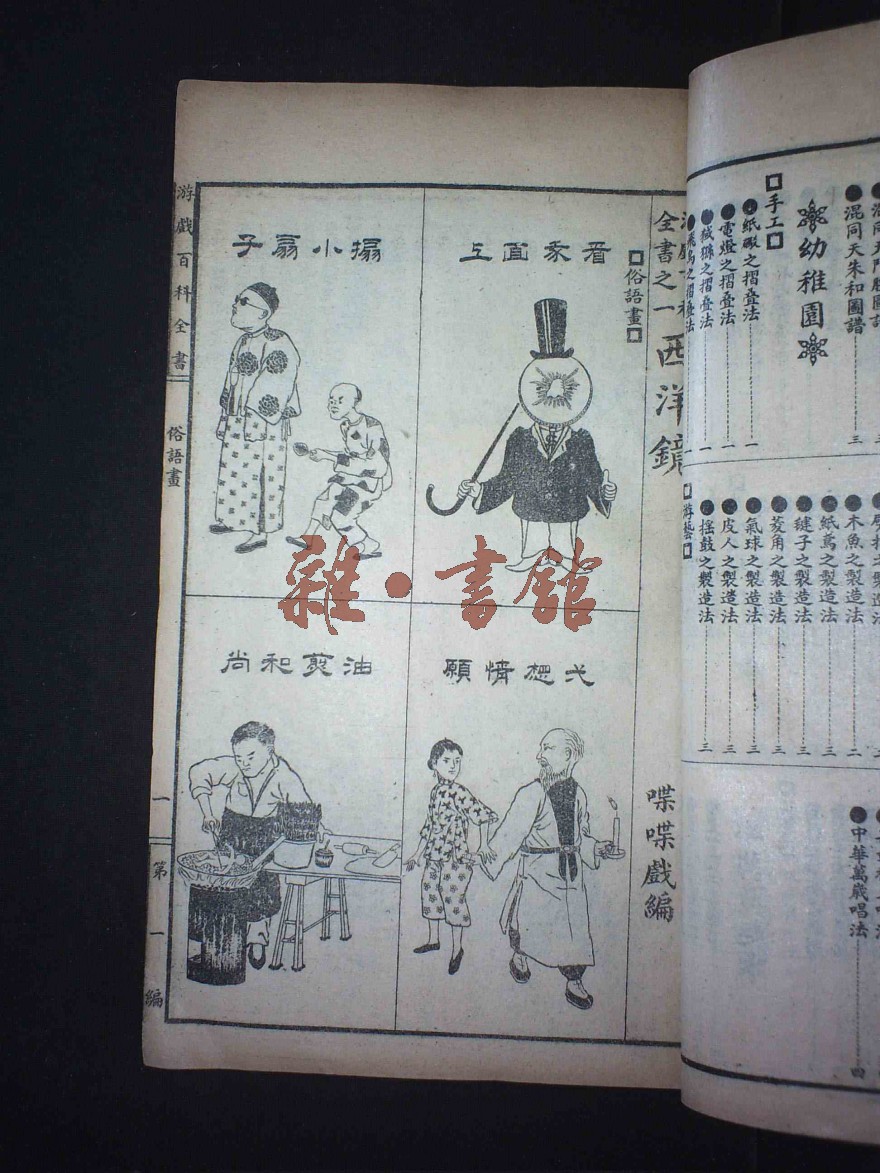 混同天朱和圖譜
三
幼稚園
手工
紙礮之摺疊法
一
電燈之摺疊法
一
之摺疊法
一
之摺疊法
一
木魚之製造法
二
紙鳶之製造法
三
毽子之製造法
三
菱角之製造法
三
氣球之製造法
三
皮人之製造法
三
搖鼓之製造法
三
游藝
中華萬歲唱法
四
全書之一
西洋鏡
喋喋戲編
俗語畫
看豕面上
搧小扇子
弍想情願
油煎和尚
游戲百科全書
俗語畫
一
第一編
雜·書館